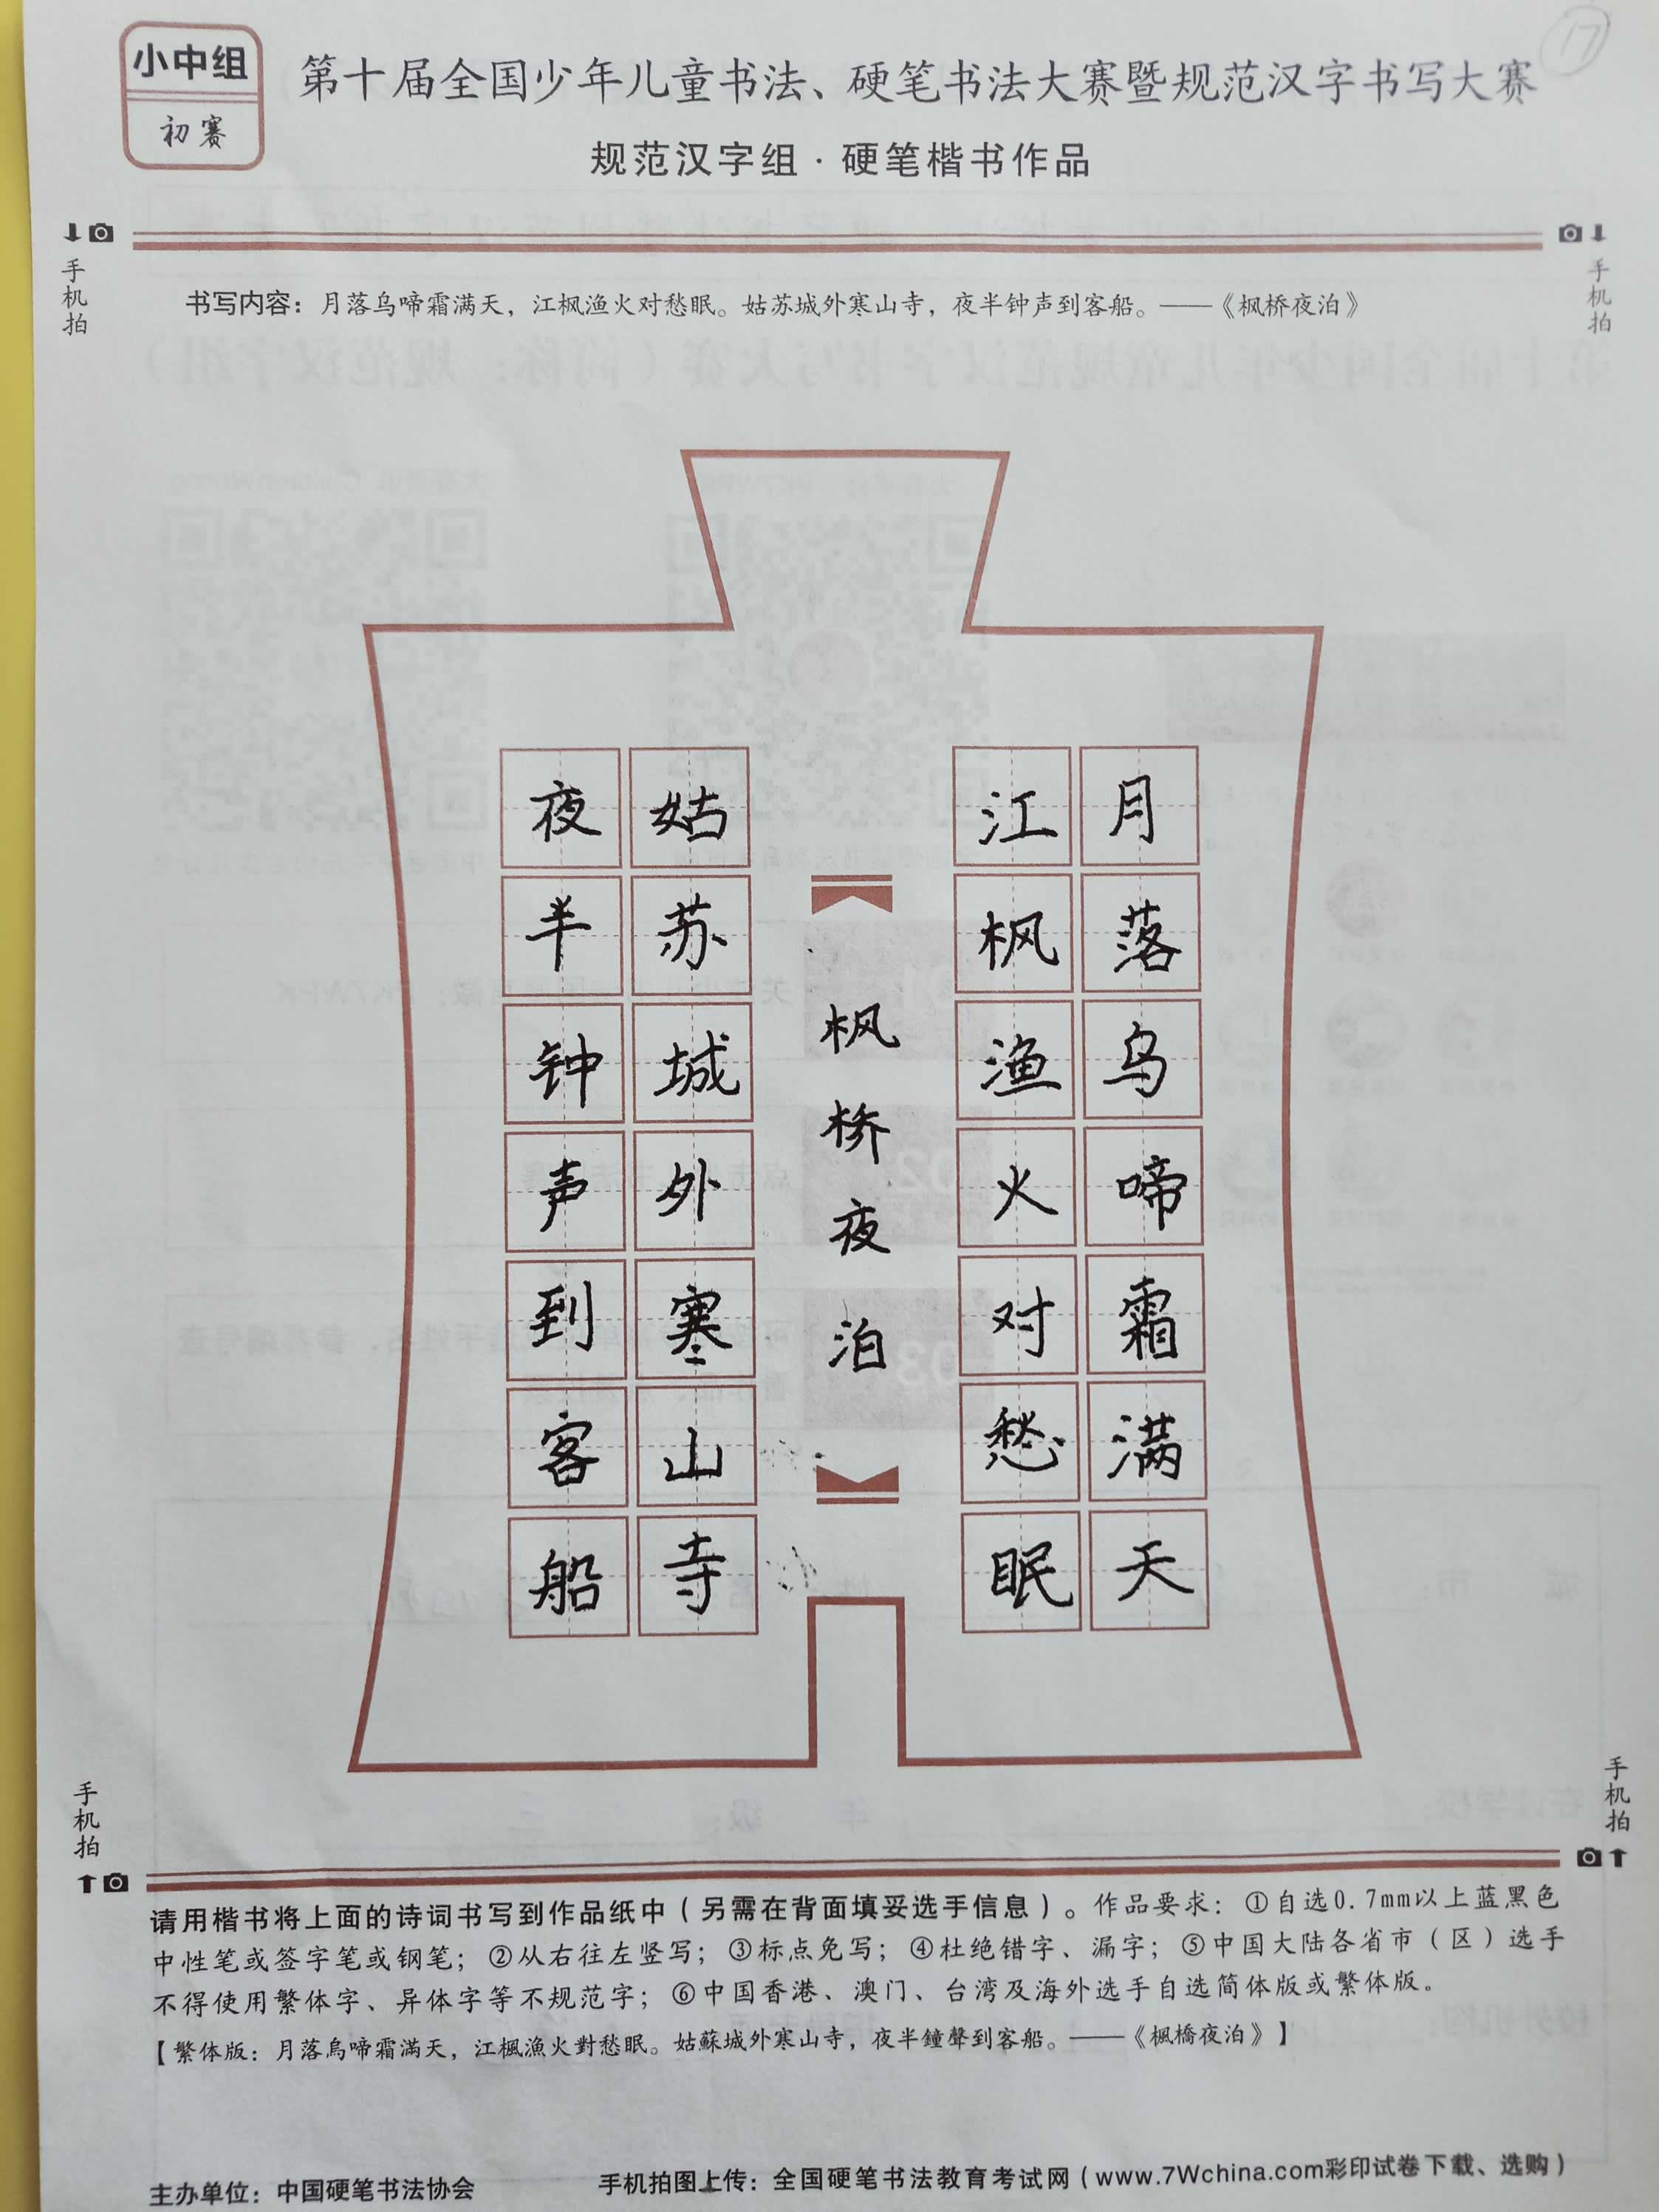 小中组
初赛
17
第十届全国少年儿童书法、硬笔书法大赛暨规范汉字书写大赛
规范汉字组·硬笔楷书作品
手机拍
手机拍
书写内容：月落乌啼霜满天，江枫渔火对愁眠。姑苏城外寒山寺，夜半钟声到客船。——《枫桥夜泊》
月落乌啼霜满天
江枫渔火对愁眠
枫桥夜泊
姑苏城外寒山寺
夜半钟声到客船
手机拍
手机拍
请用楷书将上面的诗词书写到作品纸中（另需在背面填妥选手信息）。作品要求：①自选0.7mm以上蓝黑色
中性笔或签字笔或钢笔；②从右往左竖写；③标点免写；④杜绝错字、漏字；⑤中国大陆各省市（区）选手
不得使用繁体字、异体字等不规范字；⑥中国香港、澳门、台湾及海外选手自选简体版或繁体版。
【繁体版：月落烏啼霜滿天，江楓漁火對愁眠。姑蘇城外寒山寺，夜半鐘聲到客船。——《楓橋夜泊》】
主办单位：中国硬笔书法协会
手机拍图上传：全国硬笔书法教育考试网（www.7Wchina.com彩印试卷下载、选购）